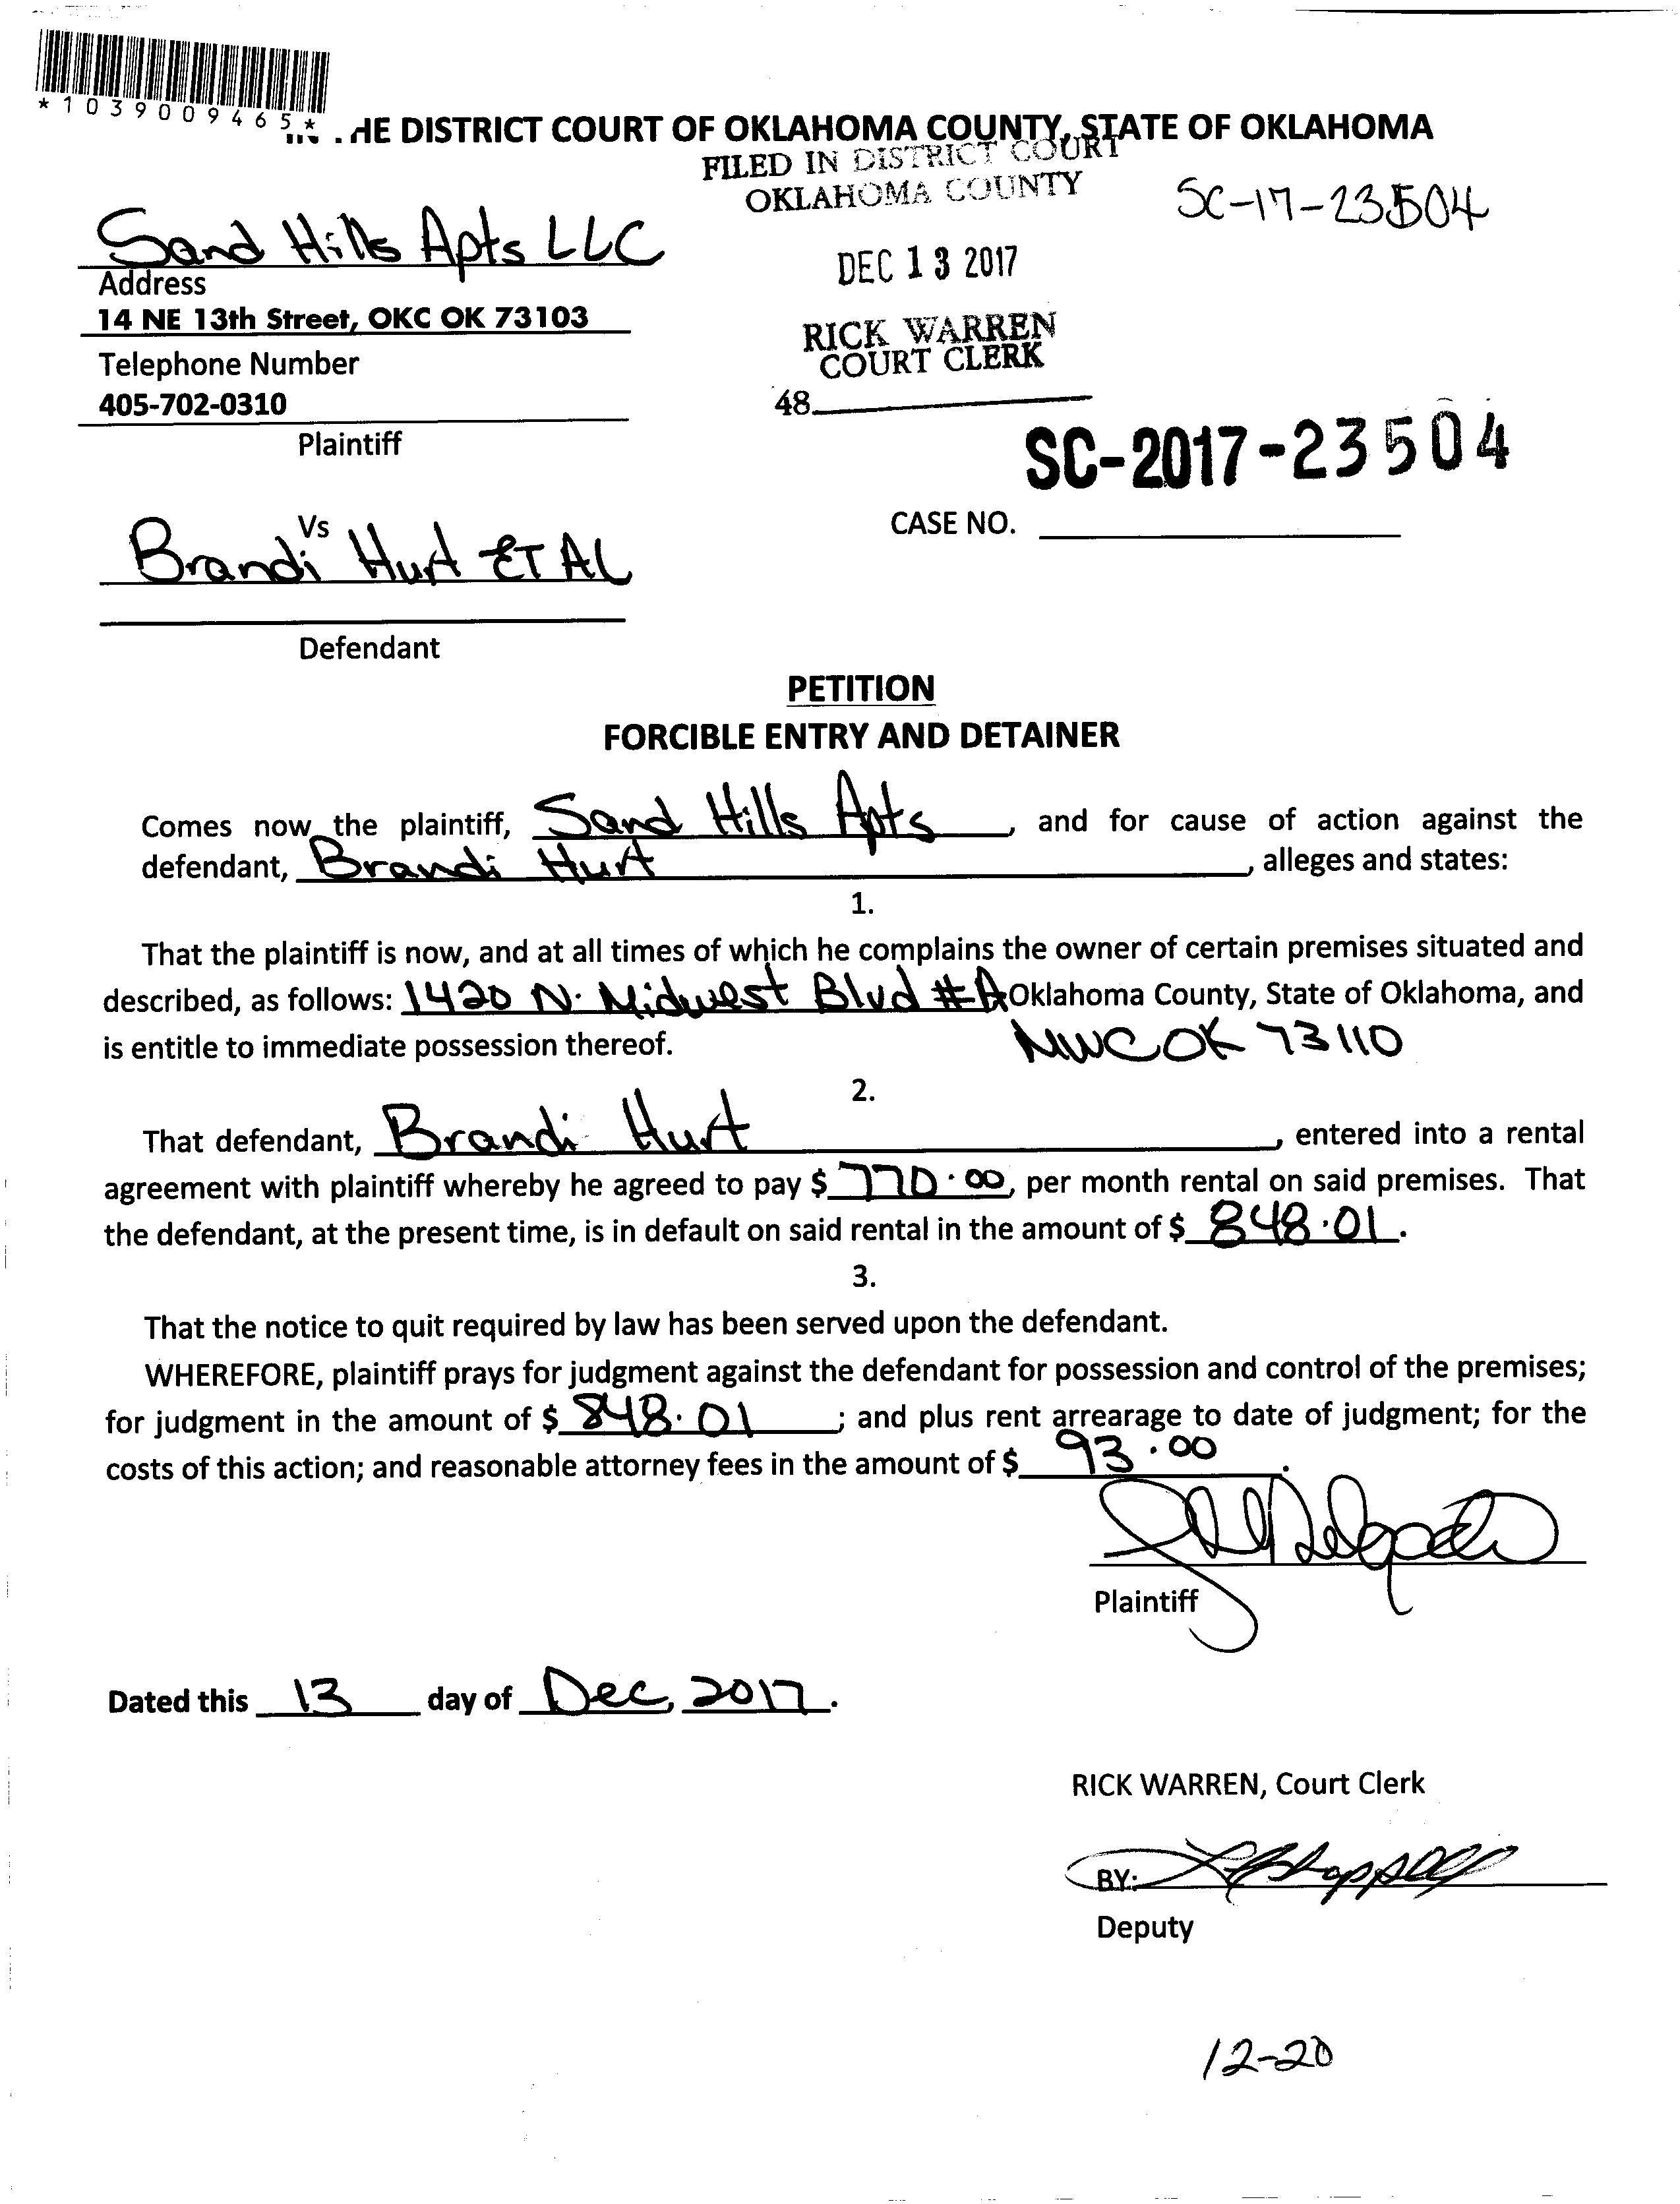 *1039009465*
HE DISTRICT COURT OF OKLAHOMA COUNTY, STATE OF OKLAHOMA
FILED IN DISTRICT COURT
OKLAHOMA COUNTY
SC-17-23504
Sand Hills Apts LLC
DEC 13 2017
Address
14 NE 13th Street, OKC OK 73103
RICK WARREN
COURT CLERK
Telephone Number
405-702-0310
48
Plaintiff
SC-2017-23504
Vs
CASE NO.
Brandi Hurt ET AL
Defendant
PETITION
FORCIBLE ENTRY AND DETAINER
Comes now the plaintiff, Sand Hills Apts, and for cause of action against the
defendant, Brandi Hurt, alleges and states:
1.
That the plaintiff is now, and at all times of which he complains the owner of certain premises situated and
described, as follows: 1420 N. Midwest Blvd #A Oklahoma County, State of Oklahoma, and
is entitle to immediate possession thereof. MWC OK 73110
2.
That defendant, Brandi Hurt, entered into a rental
agreement with plaintiff whereby he agreed to pay $ 770.00, per month rental on said premises. That
the defendant, at the present time, is in default on said rental in the amount of $ 848.01.
3.
That the notice to quit required by law has been served upon the defendant.
WHEREFORE, plaintiff prays for judgment against the defendant for possession and control of the premises;
for judgment in the amount of $ 848.01; and plus rent arrearage to date of judgment; for the
costs of this action; and reasonable attorney fees in the amount of $ 93.00.
Plaintiff
Dated this 13 day of Dec, 2017.
RICK WARREN, Court Clerk
BY:
Deputy
12-20